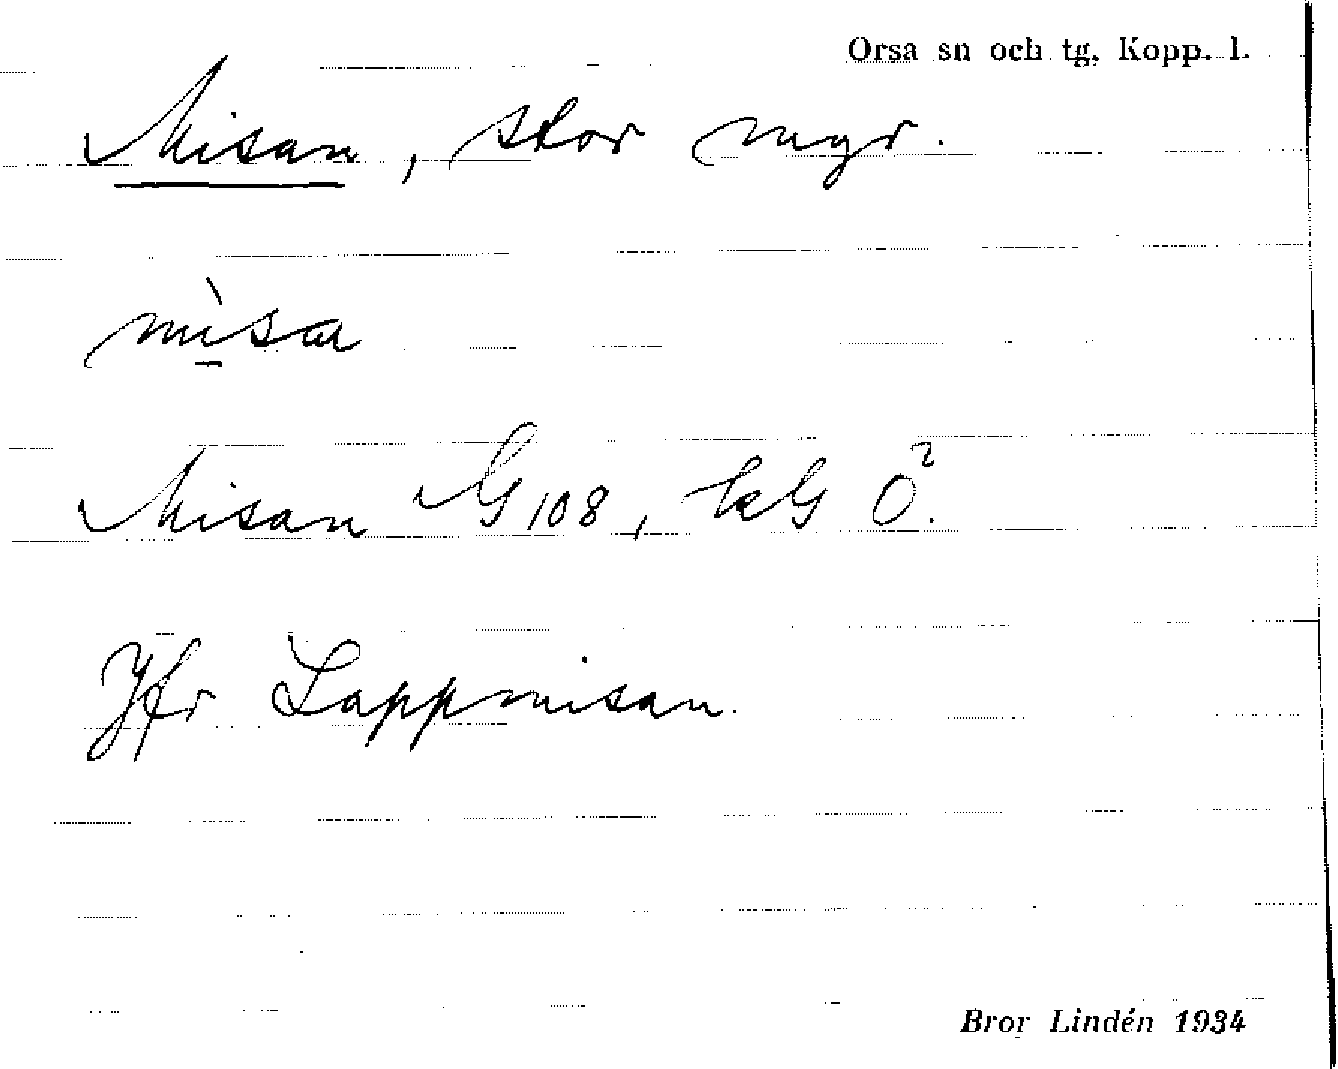 Orsa sn och tg, Kopp. l.
Misan, stor myr.
mì̱sa
Misan G 108, kG Ö².
Jfr Lappmisan.
Bror Lindén 1934